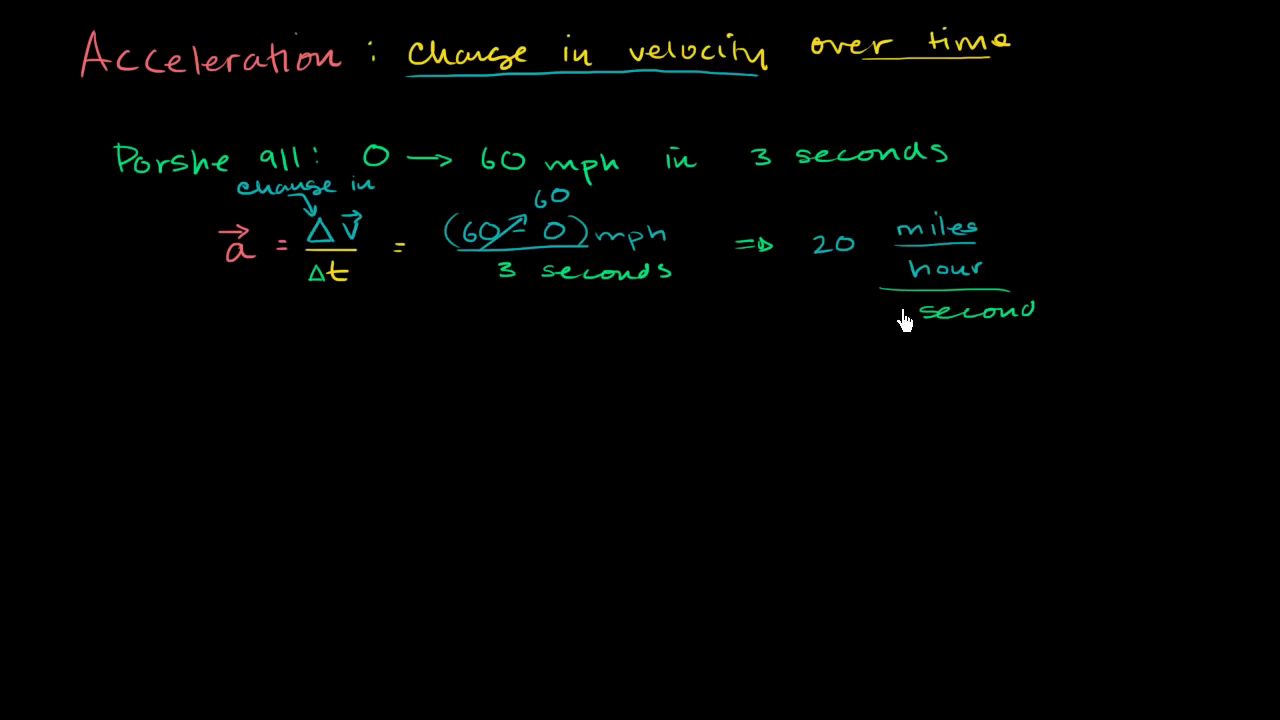 Acceleration : change in velocity over time
Porshe 911: 0 → 60 mph in 3 seconds
change in
60
a⃗ = Δv⃗ / Δt = (60 - 0) mph / 3 seconds ⇒ 20 miles / hour / second